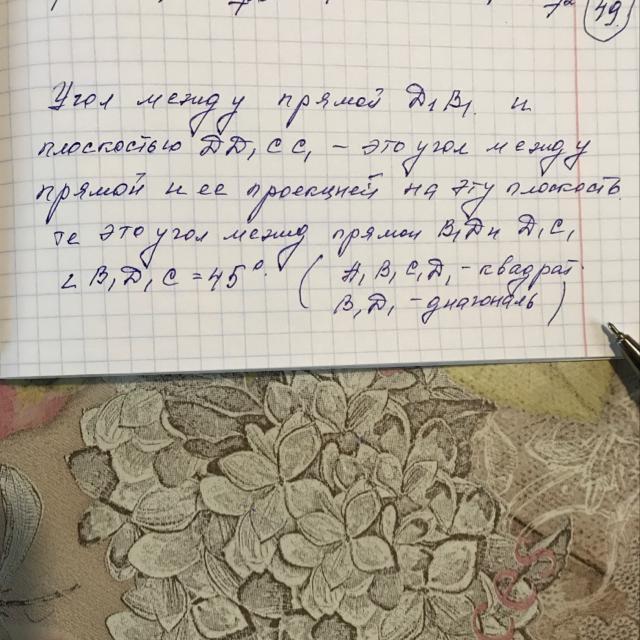 49
Угол между прямой D₁B₁ и
плоскостью DD₁CC₁ - это угол между
прямой и ее проекцией на эту плоскость
те это угол межд прямой B₁D и D₁C₁
∠ B₁D₁C = 45°. ( A₁B₁C₁D₁ - квадрат
B₁D₁ - диагональ )